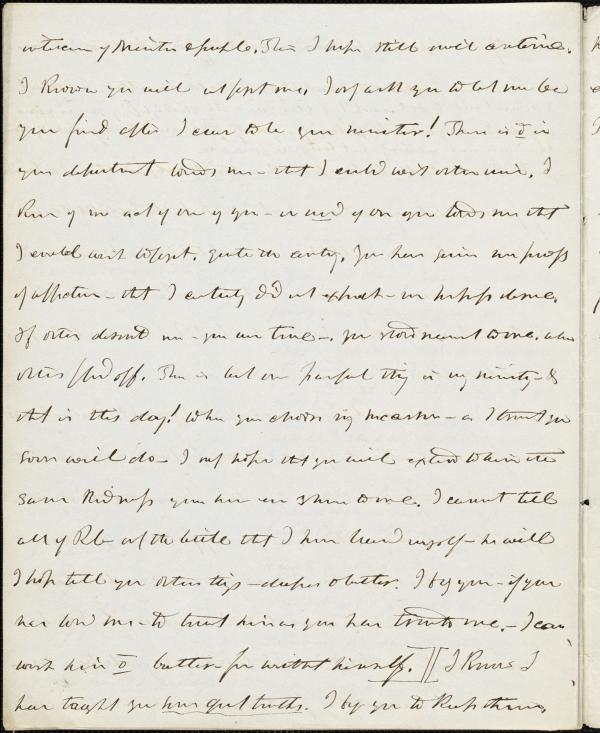 of Minister & people. This I hope still will continue.
I know you will me, I only ask you to let me be
your friend after I cease to be your minister! There is 0 in
your department towards me - tht I could wish otherwise. I
know of no act of one of you - or word of one of you towards me tht
I could wish to forget. quite the contry. You have given me proofs
of affection - tht I entirely did not expect - or perhaps deserve.
If others desert me - you are true -. You stood nearest to me. when
others fled off. There is but one painful thg in my ministry - &
tht is this day! When you choose my successor - as I trust you
soon will do - I only hope tht you will extend to him the
same kindness you have ever shown to me. I cannot tell
all of the little tht I have learnd myself - he will
I hope tell you others thgs - deeper & better. I beg you - if you
have lovd me - to trust him as you have trustd me. - I can
wish him 0 better - for withst himself.] [I know I
have taught you some great truths. I beg you to keep them